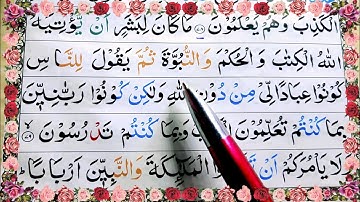 الْكَذِبَ وَهُمْ يَعْلَمُوْنَ ﴿۷۸﴾ مَا كَانَ لِبَشَرٍ اَنْ يُّؤْتِيَهُ
اللّٰهُ الْكِتٰبَ وَ الْحُكْمَ وَالنُّبُوَّةَ ثُمَّ يَقُوْلَ لِلنَّاسِ
كُوْنُوْا عِبَادًا لِّيْ مِنْ دُوْنِ اللّٰهِ وَلٰكِنْ كُوْنُوْا رَبّٰنِيّٖنَ
بِمَا كُنْتُمْ تُعَلِّمُوْنَ الْكِتٰبَ وَبِمَا كُنْتُمْ تَدْرُسُوْنَ ﴿۷۹﴾
لَا يَاْمُرَكُمْ اَنْ الْمَلٰٓئِكَةَ وَالنَّبِيّٖنَ اَرْبَابًا